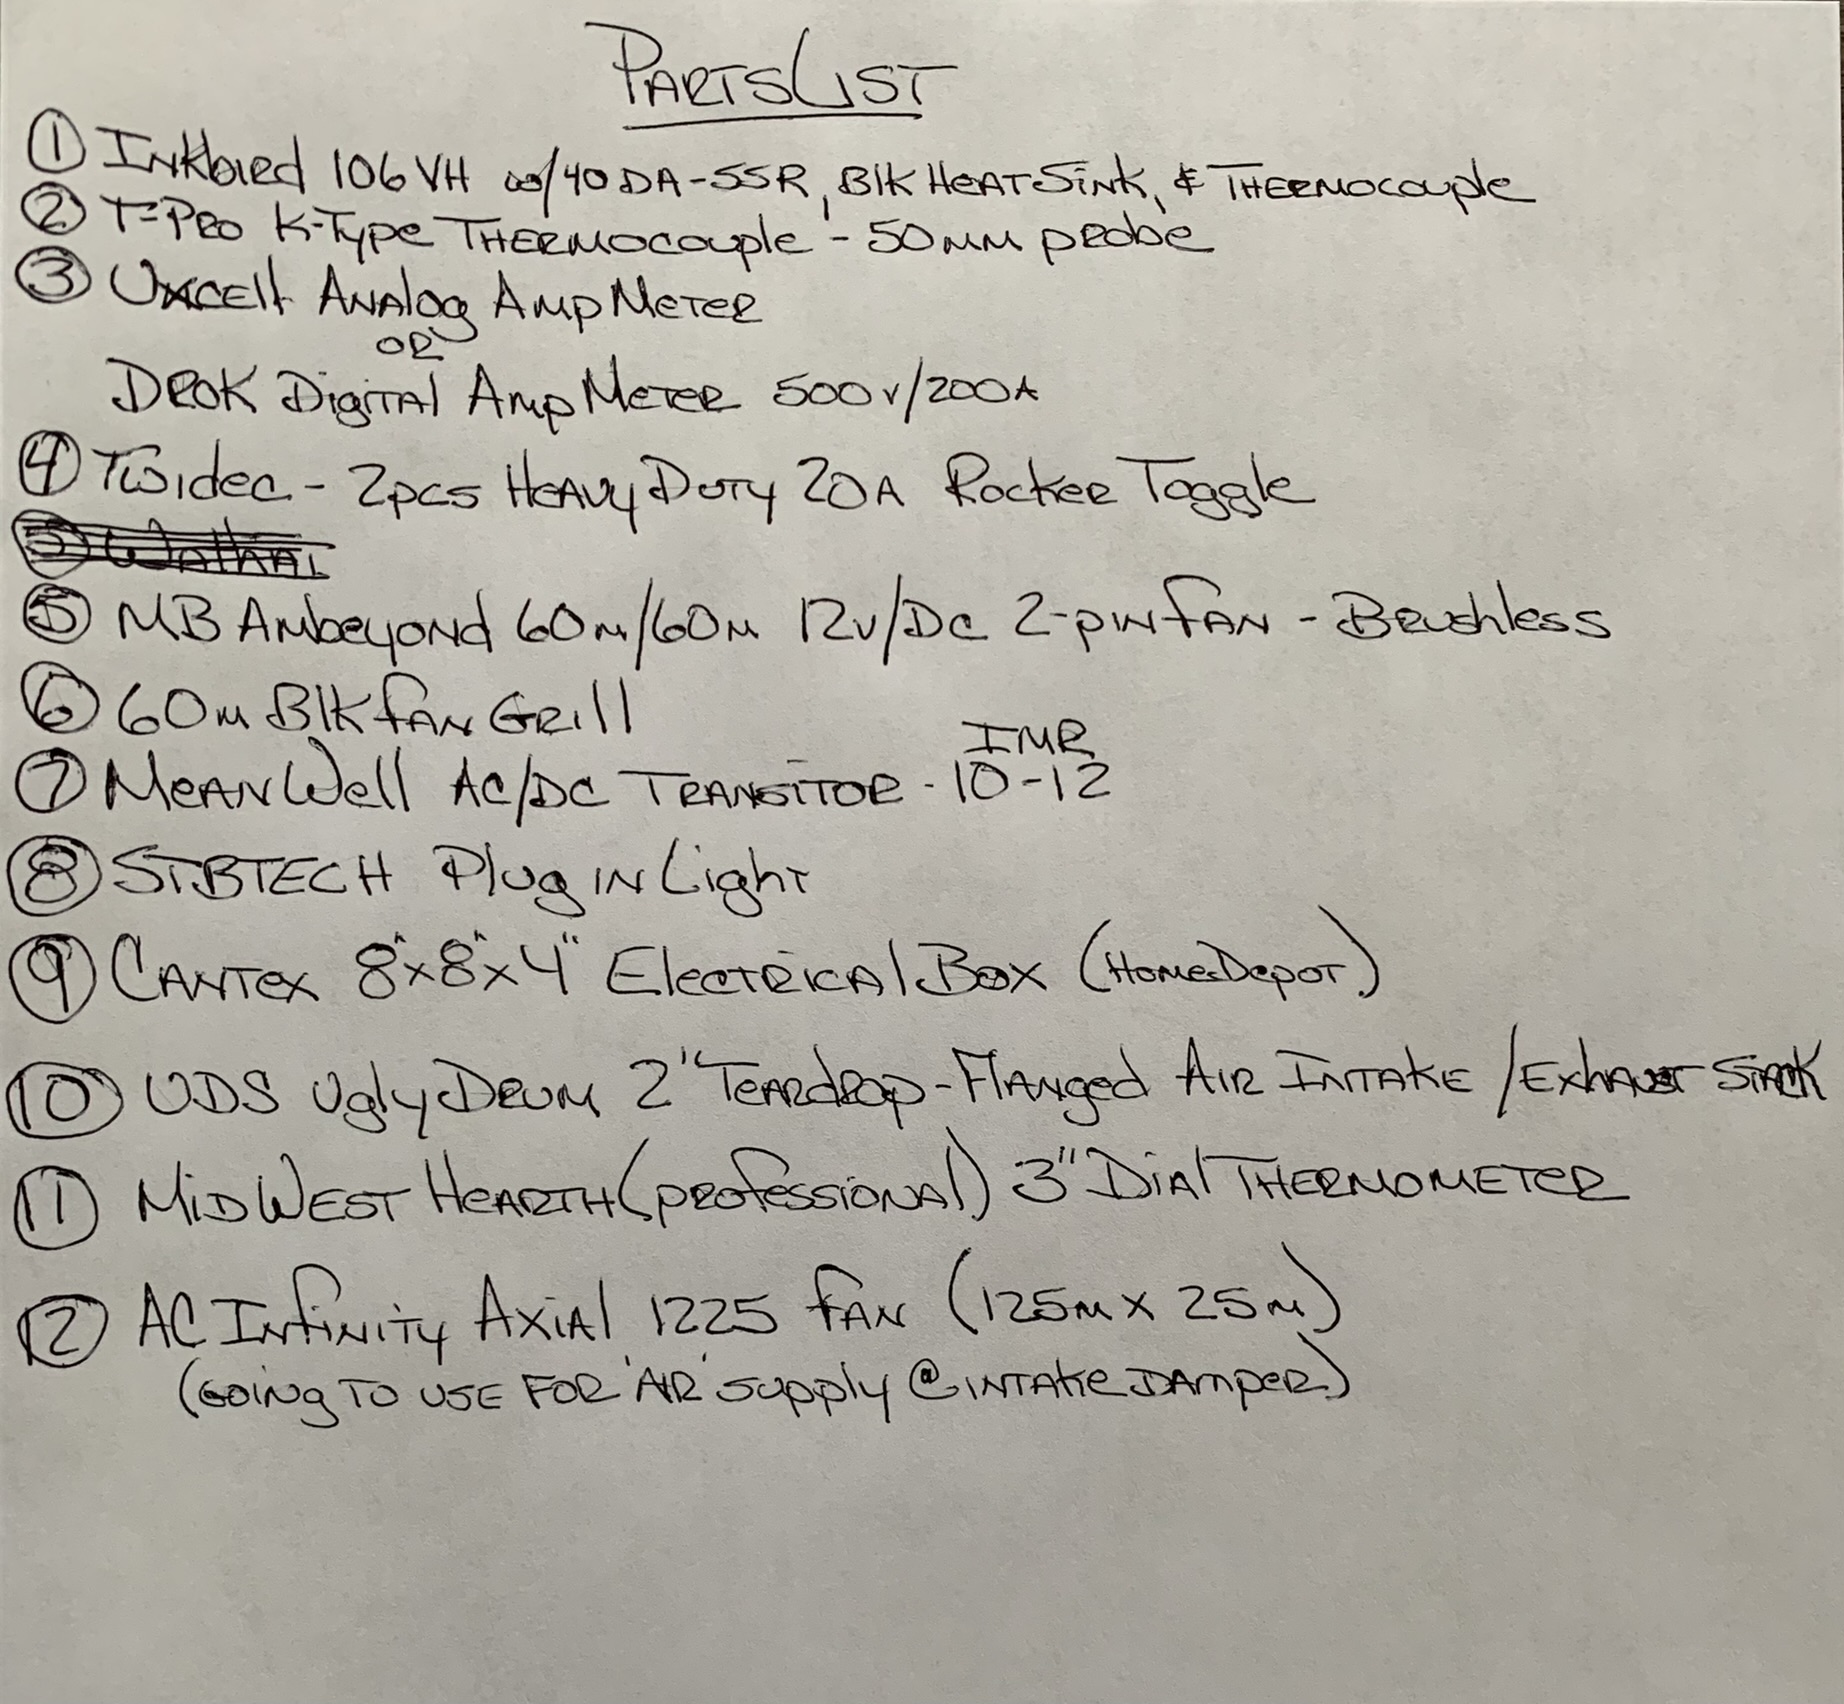 Parts List
① Inkbird 106 VH w/ 40 DA-SSR, Blk Heat Sink, & Thermocouple
② T-Pro K-Type Thermocouple - 50mm probe
③ Uxcell Analog Amp Meter
or
DROK Digital Amp Meter 500v/200A
④ Twidec - 2pcs Heavy Duty 20A Rocker Toggle
⑤ MB Ambeyond 60m/60m 12v/DC 2-pin fan - Brushless
⑥ 60m Blk fan Grill
IMR
⑦ Mean Well AC/DC Transitor - 10-12
⑧ STBTECH Plug in Light
⑨ Cantex 8"x8"x4" Electrical Box (Home Depot)
⑩ UDS Ugly Drum 2" Teardrop - Flanged Air Intake / Exhaust Stack
⑪ MidWest Hearth (professional) 3" Dial Thermometer
⑫ AC Infinity Axial 1225 fan (125m x 25m)
(Going to use for 'Air' supply @ intake Damper)